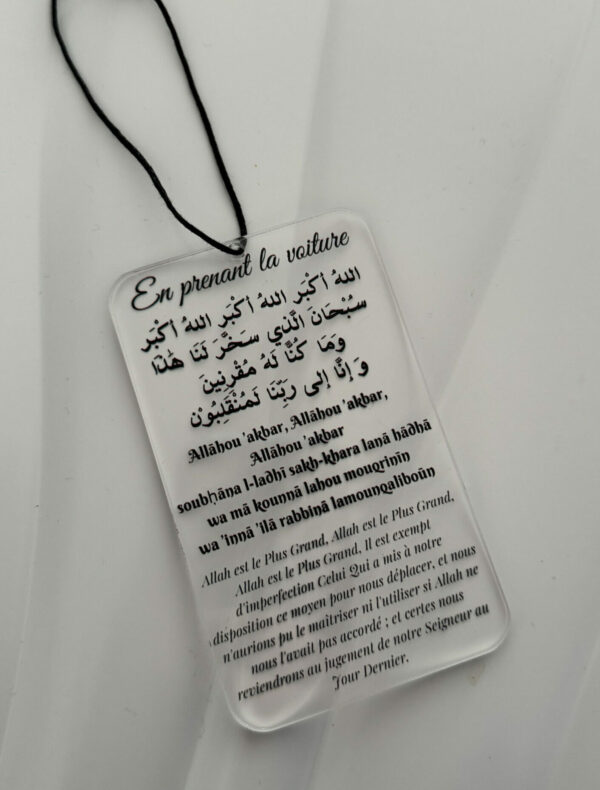 En prenant la voiture
اللهُ أكْبَر اللهُ أكْبَر اللهُ أكْبَر
سُبْحَانَ الَّذِي سَخَّرَ لَنَا هَٰذَا
وَمَا كُنَّا لَهُ مُقْرِنِينَ
وَ إِنَّا إِلى رَبِّنَا لَمُنْقَلِبُوْن
Allāhou 'akbar, Allāhou 'akbar,
Allāhou 'akbar
soubḥāna l-ladhī sakh-khara lanā hādhā
wa mā kounnā lahou mouqrinīn
wa 'innā 'ilā rabbinā lamounqaliboūn
Allah est le Plus Grand, Allah est le Plus Grand,
Allah est le Plus Grand, Il est exempt
d'imperfection Celui Qui a mis à notre
disposition ce moyen pour nous déplacer, et nous
n'aurions pu le maitriser ni l'utiliser si Allah ne
nous l'avait pas accordé ; et certes nous
reviendrons au jugement de notre Seigneur au
Jour Dernier.